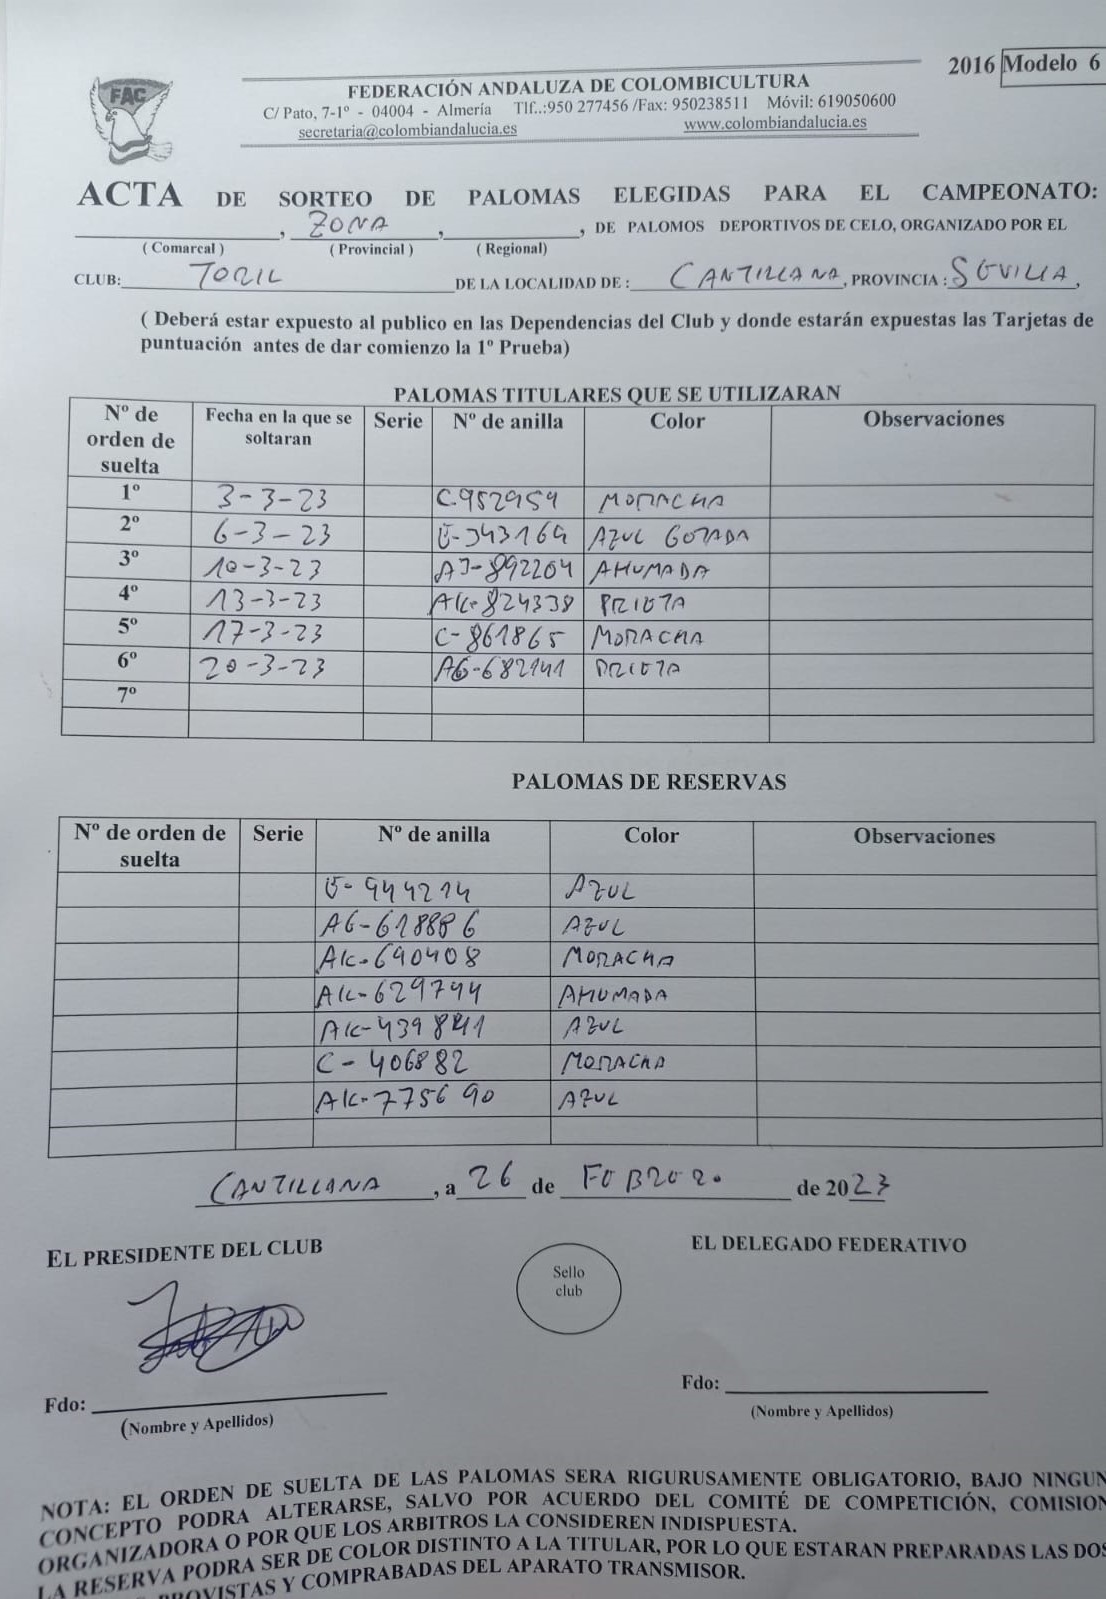 2016 Modelo 6
FAC
FEDERACIÓN ANDALUZA DE COLOMBICULTURA
C/ Pato, 7-1º - 04004 - Almería Tlf..:950 277456 /Fax: 950238511 Móvil: 619050600
secretaria@colombiandalucia.es www.colombiandalucia.es
ACTA DE SORTEO DE PALOMAS ELEGIDAS PARA EL CAMPEONATO:
, ZONA , , DE PALOMOS DEPORTIVOS DE CELO, ORGANIZADO POR EL
( Comarcal ) ( Provincial ) ( Regional)
CLUB: TORIL DE LA LOCALIDAD DE : CANTILLANA, PROVINCIA : SEVILLA,
( Deberá estar expuesto al publico en las Dependencias del Club y donde estarán expuestas las Tarjetas de
puntuación antes de dar comienzo la 1º Prueba)
PALOMAS TITULARES QUE SE UTILIZARAN
Nº de orden de suelta Fecha en la que se soltaran Serie Nº de anilla Color Observaciones
1º 3-3-23 C-952959 MORACHA
2º 6-3-23 343169 AZUL GOTADA
3º 10-3-23 AJ-892204 AHUMADA
4º 13-3-23 AK-824338 PRIETA
5º 17-3-23 C-861865 MORACHA
6º 20-3-23 AG-682141 PRIETA
7º
PALOMAS DE RESERVAS
Nº de orden de suelta Serie Nº de anilla Color Observaciones
944214 AZUL
AG-618886 AZUL
AK-690408 MORACHA
AK-629744 AHUMADA
AK-439841 AZUL
C-406882 MORACHA
AK-775690 AZUL
CANTILLANA, a 26 de FEBRERO. de 2023
EL PRESIDENTE DEL CLUB EL DELEGADO FEDERATIVO
Sello
club
Fdo: Fdo:
(Nombre y Apellidos) (Nombre y Apellidos)
NOTA: EL ORDEN DE SUELTA DE LAS PALOMAS SERA RIGURUSAMENTE OBLIGATORIO, BAJO NINGUN
CONCEPTO PODRA ALTERARSE, SALVO POR ACUERDO DEL COMITÉ DE COMPETICIÓN, COMISION
ORGANIZADORA O POR QUE LOS ARBITROS LA CONSIDEREN INDISPUESTA.
LA RESERVA PODRA SER DE COLOR DISTINTO A LA TITULAR, POR LO QUE ESTARAN PREPARADAS LAS DOS
PROVISTAS Y COMPRABADAS DEL APARATO TRANSMISOR.